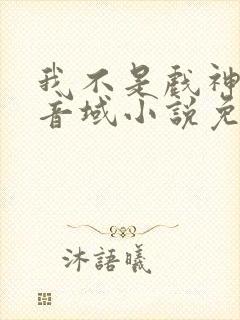 我不是戲神
音域小說免
沐語曦